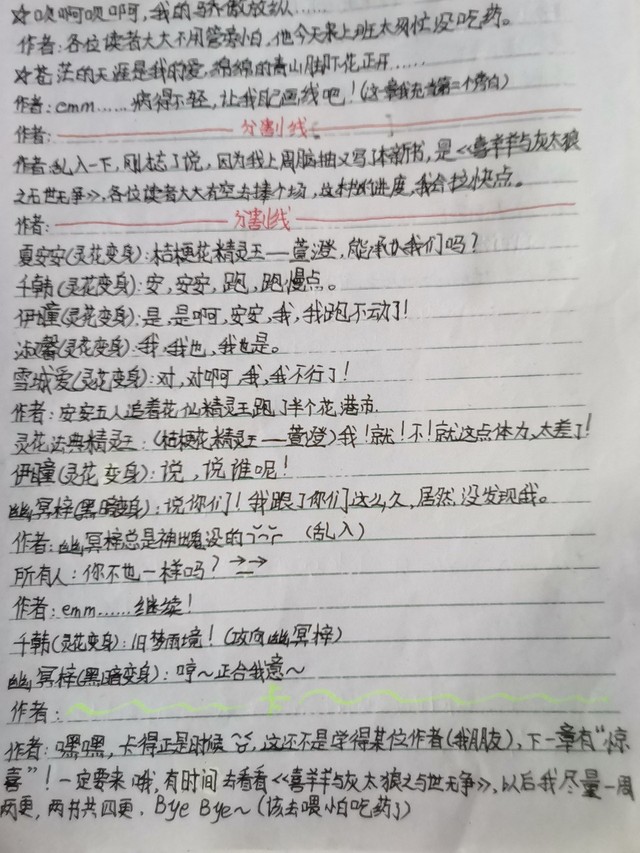 ☆呗啊呗啊,我的骄傲放纵……
作者:各位读者大大不用管旁白,他今天来上班太匆忙没吃药。
☆苍茫的天涯是我的爱,绵绵的青山脚下花正开……
作者:emm……病得不轻,让我画线吧!(这章我充当第二个旁白)
作者:分割线
作者:乱入一下,刚忘了说,因为我上周脑抽又写了本新书,是《喜羊羊与灰太狼
之与世无争》,各位读者大大有空去捧个场,这本书的进度,我会拉快点。
作者:分割线
夏安安(灵花变身):桔梗花精灵王——萱澄,能承认我们吗?
千韩(灵花变身):安,安安,跑,跑慢点。
伊瞳(灵花变身):是,是啊,安安,我,我跑不动了!
淑馨(灵花变身):我,我也,我也是。
雪城爱(灵花变身):对,对啊,我,我不行了!
作者:安安五人追着花仙精灵王跑了半个花港市.
灵花法典精灵王:(桔梗花精灵王——萱澄)我!就!不!就这点体力,太差了!
伊瞳(灵花变身):说,说谁呢!
幽冥梓(黑暗变身):说你们!我跟了你们这么久,居然没发现我。
作者:幽冥梓总是神出鬼没的 (乱入)
所有人:你不也一样吗?→_→
作者:emm……继续!
千韩(灵花变身):旧梦雨境!(攻向幽冥梓)
幽冥梓(黑暗变身):哼~正合我意~
作者:
作者:嘿嘿,卡得正是时候,这还不是学得某位作者(我朋友),下一章有“惊
喜”!一定要来哦,有时间去看看《喜羊羊与灰太狼之与世无争》,以后我尽量一周
两更,两书共四更.Bye Bye~(该去喂小白吃药了)